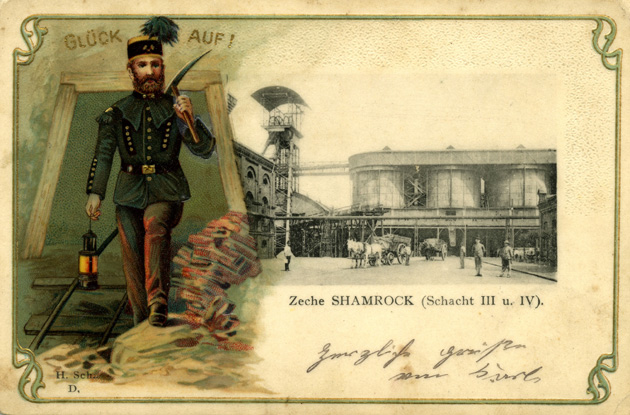 GLÜCK AUF!
Zeche SHAMROCK (Schacht III u. IV).
Herzliche Grüße
von Karl
H. Sch.
D.